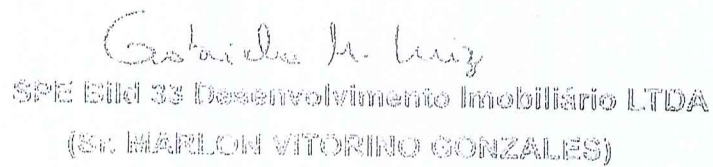 Gabriela M. Luiz
SPE Bild 33 Desenvolvimento Imobiliário LTDA
(Sr. MARLON VITORINO GONZALES)